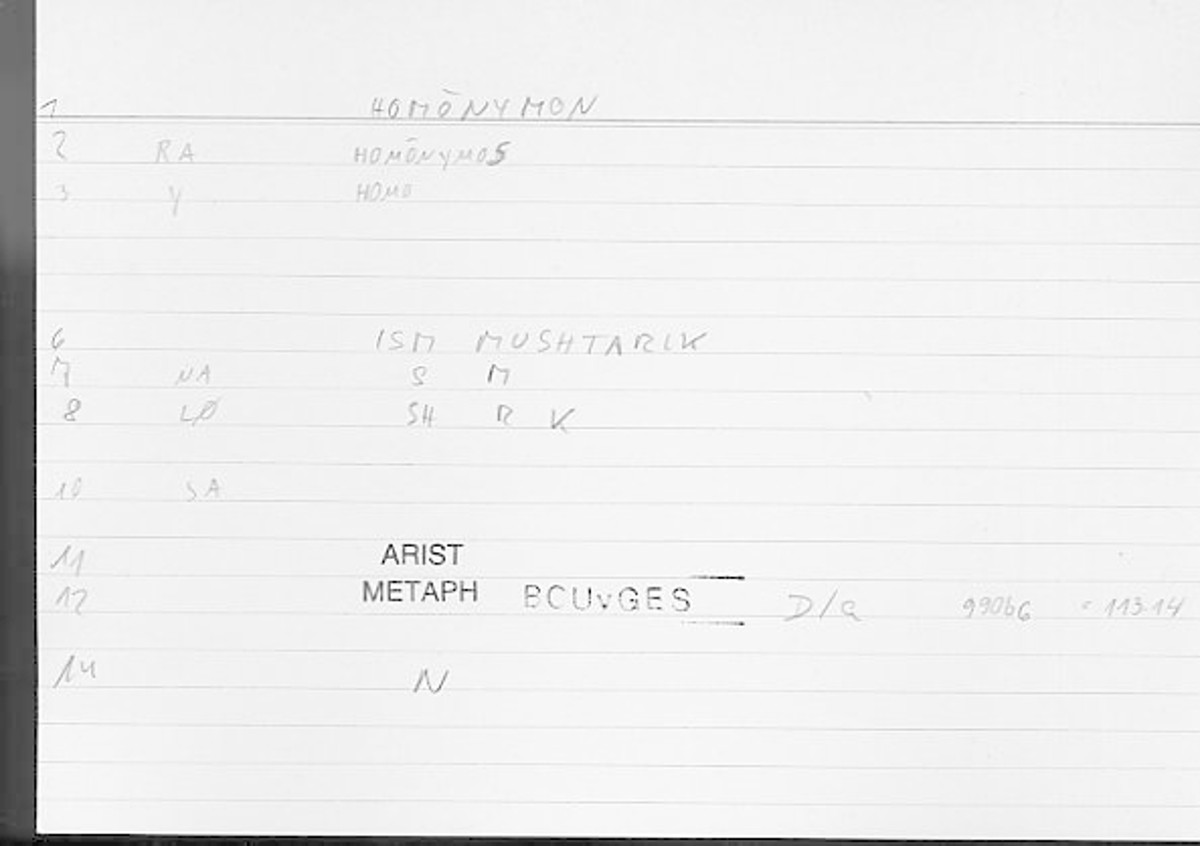 1 HOMŌNYMON
2 RA HOMŌNYMOS
3 Y HOMO
6 ISM MUSHTARIK
7 NA S M
8 LØ SH R K
10 SA
11 ARIST
12 METAPH BCUvGES D/a 990b6 = 113.14
14 N